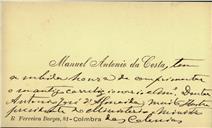 Manuel Antonio da Costa, tem
a subida honra de cumprimentar
o correligionario Exmo. Doutor
Antonio José d'Almeida, muito Illustre
presidente do ministerio, Ministro
R. Ferreira Borges, 81-Coimbra das Colonias